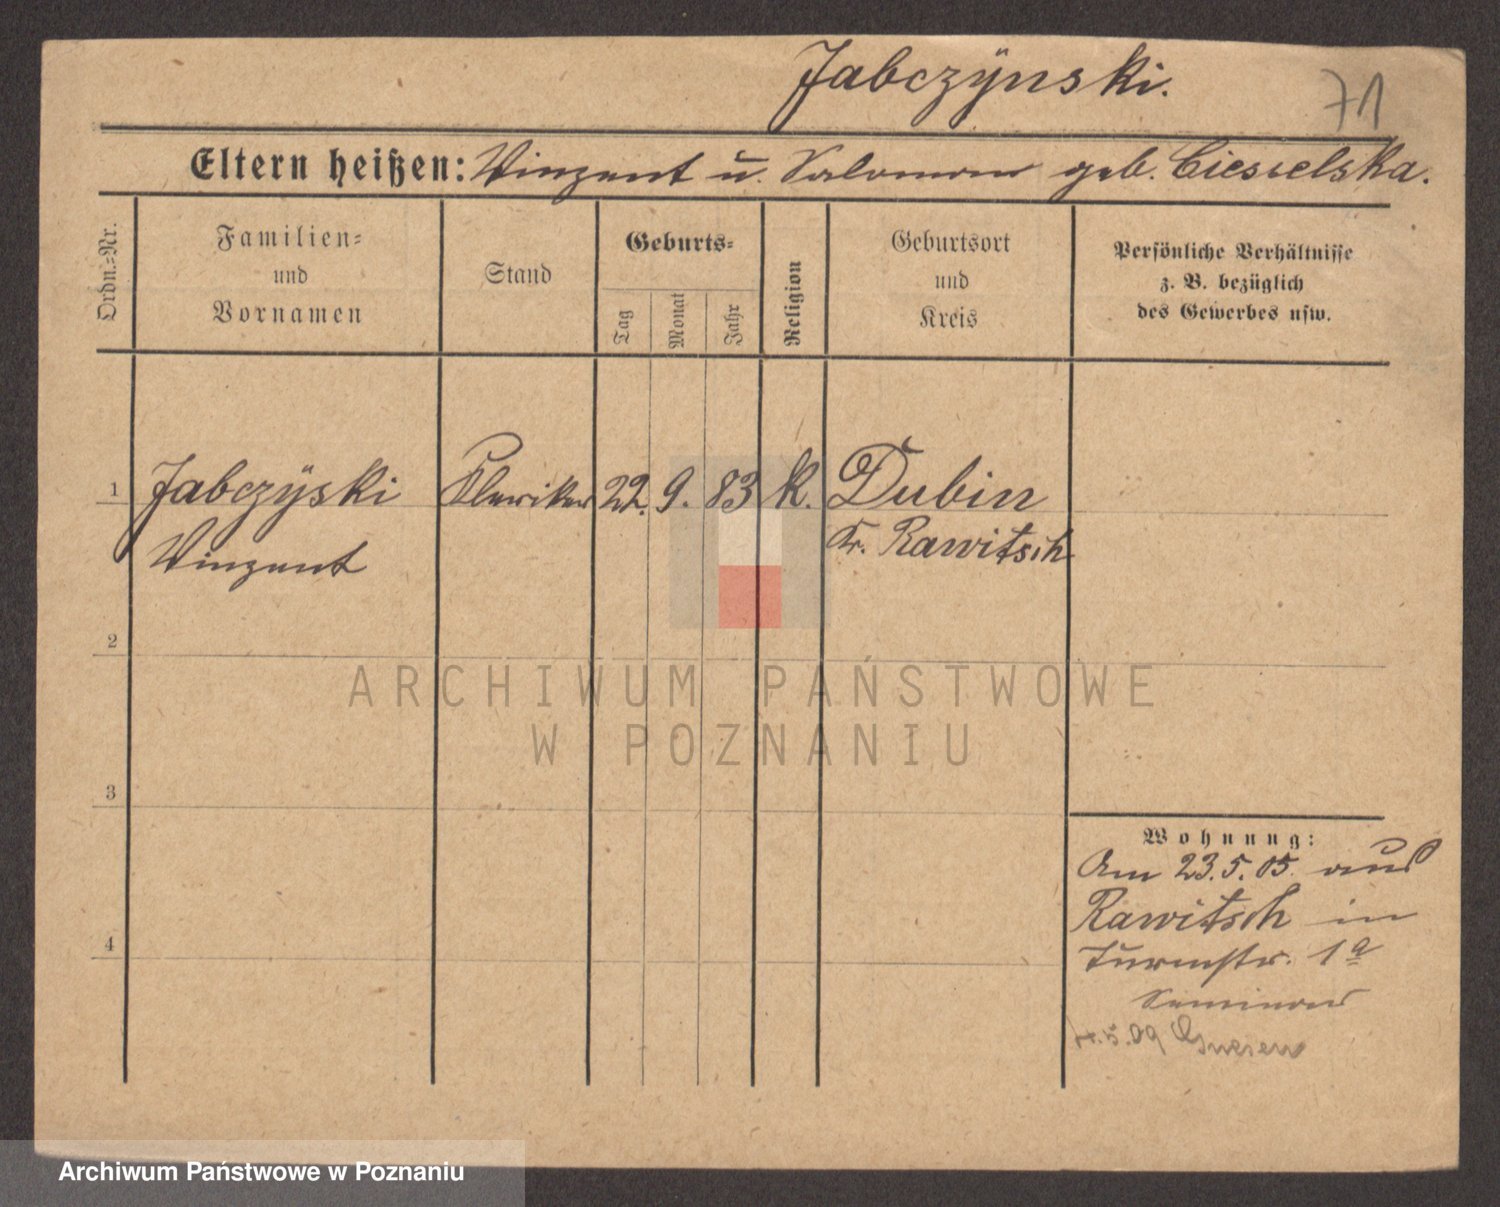 Jabczÿnski.
71
Eltern heißen: Vinzent u. Salomea geb. Ciesielska.
Ordn.-Nr.
Familien-
und
Vornamen
Stand
Geburts-
Tag
Monat
Jahr
Religion
Geburtsort
und
Kreis
Persönliche Verhältnisse
z. B. bezüglich
des Gewerbes usw.
1 Jabczÿski Kleriker 22. 9. 83 k. Dubin
Vinzent Kr. Rawitsch
2
3
4
Wohnung:
Am 23.5.05 aus
Rawitsch in
Turmstr. 1a
Seminar
5.09 Gnesen
ARCHIWUM PAŃSTWOWE
W POZNANIU
Archiwum Państwowe w Poznaniu